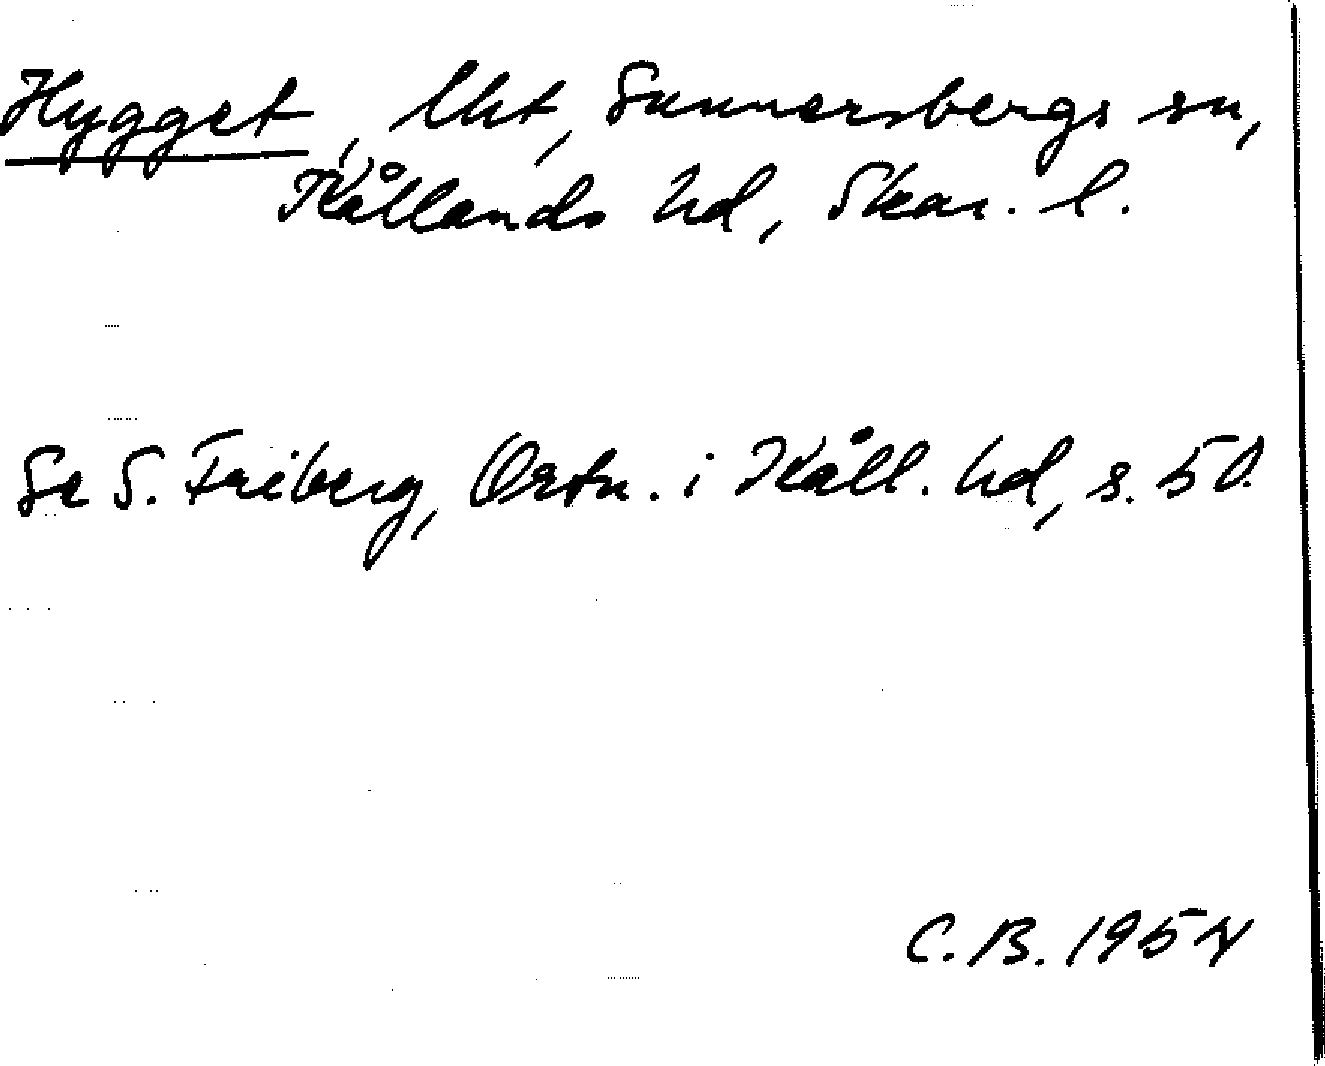 Hygget, lht, Sunnersbergs sn,
Kållands hd, Skar. l.
Se S. Friberg, Ortn. i Kåll. hd, s. 50.
C. B. 1954